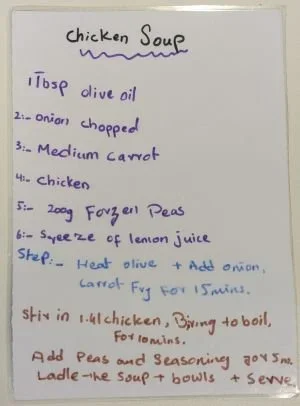 Chicken Soup
1 Tbsp olive oil
2:- onion chopped
3:- Medium carrot
4:- chicken
5:- 200g Forzen Peas
6:- Sqeeze of lemon juice
Step:- Heat olive + Add onion,
Carrot Fry For 15mins.
Stir in 1.4l chicken, Bring to boil,
For 10mins.
Add Peas and Seasoning For 5m.
Ladle the Soup + bowls + Serve